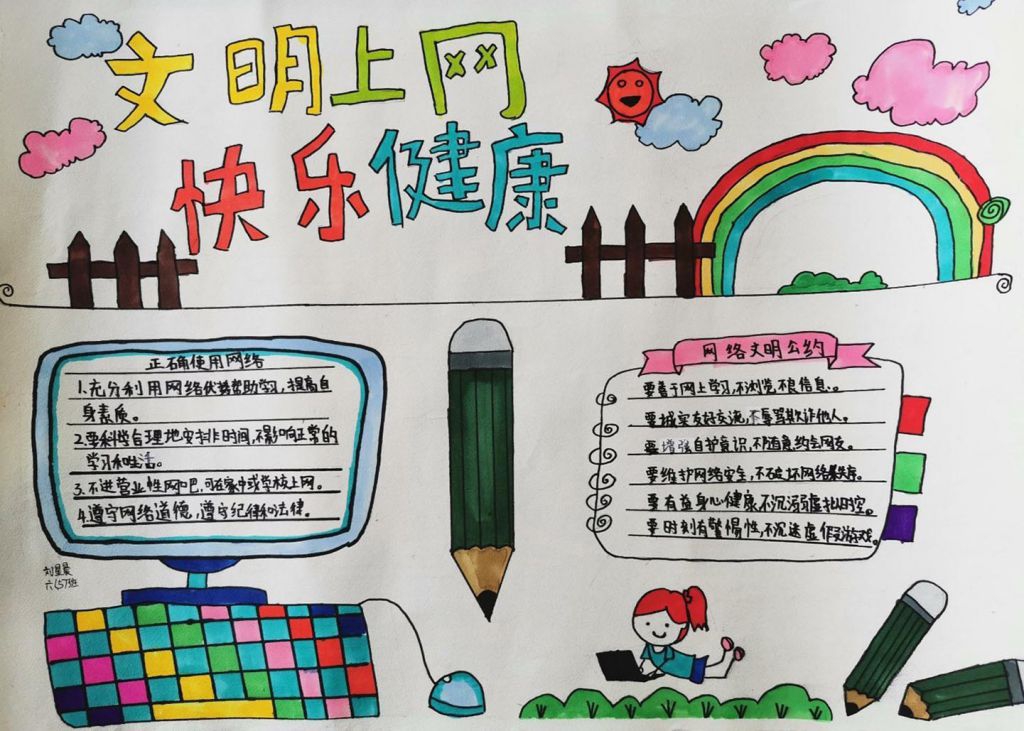 文明上网
快乐健康
正确使用网络
1.充分利用网络优势帮助学习，提高自
身素质。
2.要科学合理地安排时间，不影响正常的
学习和生活。
3.不进营业性网吧，可在家中或学校上网。
4.遵守网络道德，遵守纪律和法律。
刘星晨
六（5）班
网络文明公约
要善于网上学习，不浏览不良信息。
要诚实友好交流，不辱骂欺诈他人。
要增强自护意识，不随意约会网友。
要维护网络安全，不破坏网络秩序。
要有益身心健康，不沉溺虚拟时空。
要时刻有警惕性，不沉迷虚假游戏。